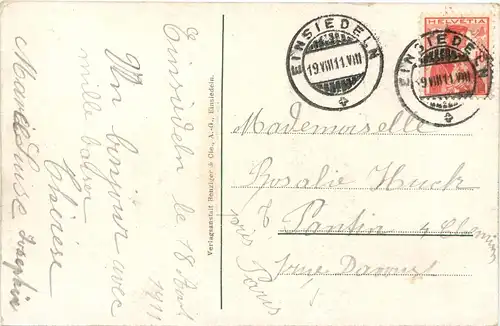 Einsiedeln le 18 Août
1911
Un bonjour avec
mille baiser
Thérèse
Marie Louise Josephin
Verlagsanstalt Benziger & Cie., A.-G., Einsiedeln.
EINSIEDELN
19.VIII.11.VIII
HELVETIA
EINSIEDELN
19.VIII.11.VIII
Mademoiselle
Rosalie Huck
Pantin
près Paris